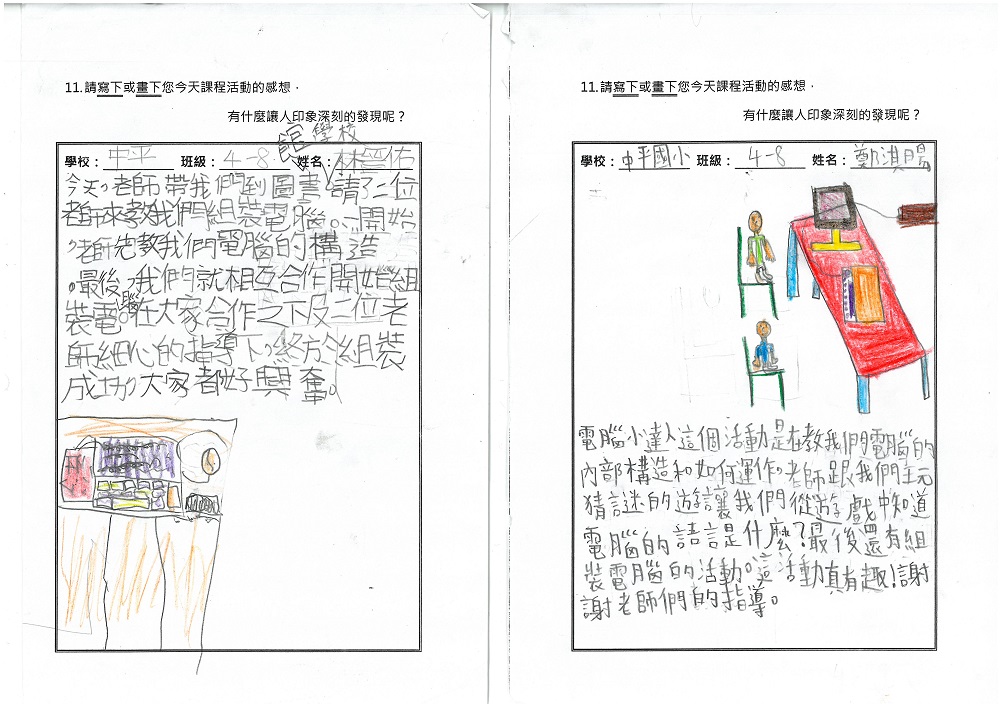 11.請寫下或畫下您今天課程活動的感想，
有什麼讓人印象深刻的發現呢？
學校：中平 班級：4-8 姓名：林晉佑
館 學校
今天，老師帶我們到圖書請了二位
老師來教我們組裝電腦。一開始
，老師先教我們電腦的構造
。最後，我們就相互合作開始組
裝電腦。在大家合作之下及二位老
師細心的指導下，終於組裝
成功，大家都好興奮。
11.請寫下或畫下您今天課程活動的感想，
有什麼讓人印象深刻的發現呢？
學校：中平國小 班級：4-8 姓名：鄭淇陽
電腦小達人這個活動是在教我們電腦的
內部構造和如何運作。老師跟我們玩
猜謎的遊讓我們從遊戲中知道
電腦的語言是什麼？最後還有組
裝電腦的活動。這活動真有趣！謝
謝老師們的指導。